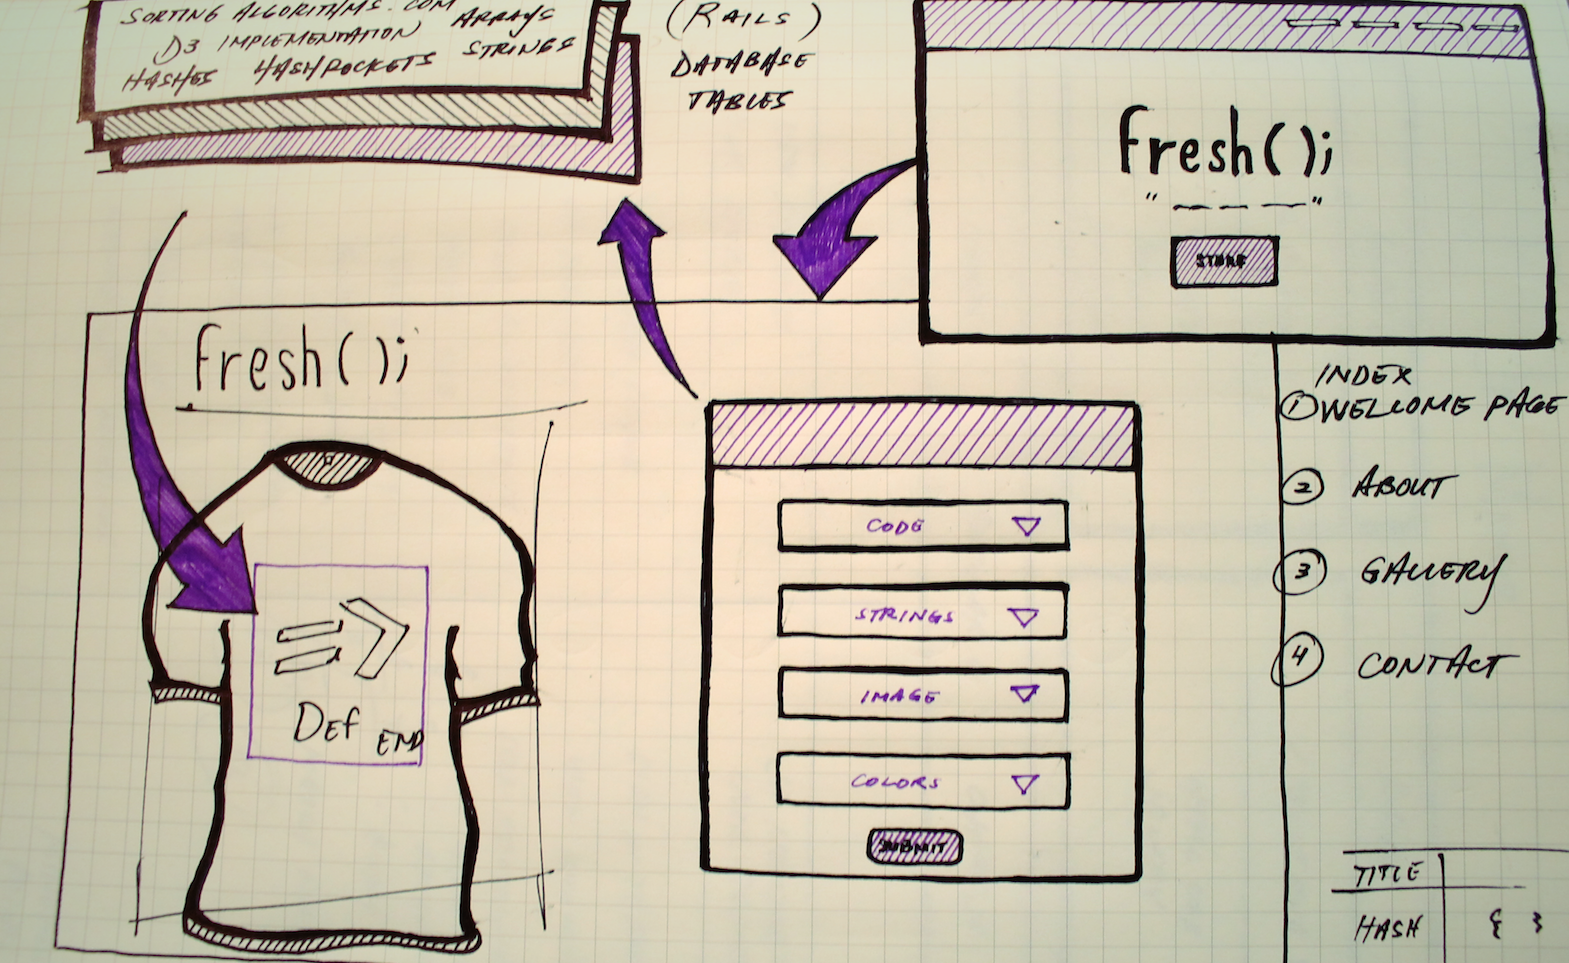 SORTING ALGORITHMS.COM
D3 IMPLEMENTATION ARRAYS
HASHES HASHROCKETS STRINGS
(RAILS)
DATABASE
TABLES
fresh();
" — — — "
STORE
fresh();
=>
DEF END
CODE
STRINGS
IMAGE
COLORS
SUBMIT
INDEX
1 WELCOME PAGE
2 ABOUT
3 GALLERY
4 CONTACT
TITLE
HASH { }